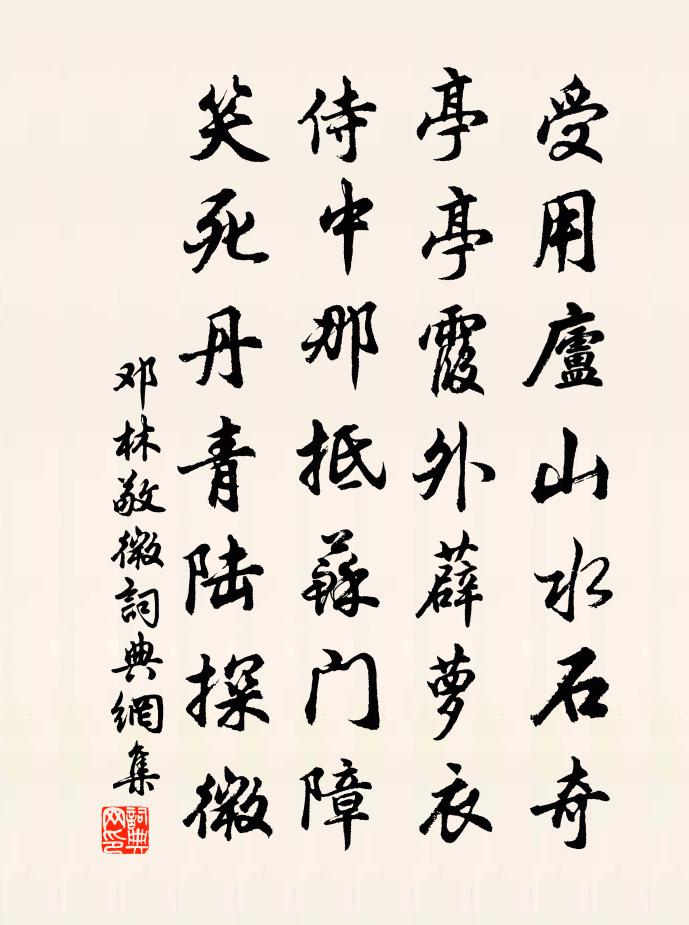 受用廬山水石奇
亭亭霞外薜萝衣
侍中那抵蘇门障
笑死丹青陆探微
邓林敬微詞典網集
詞典网印